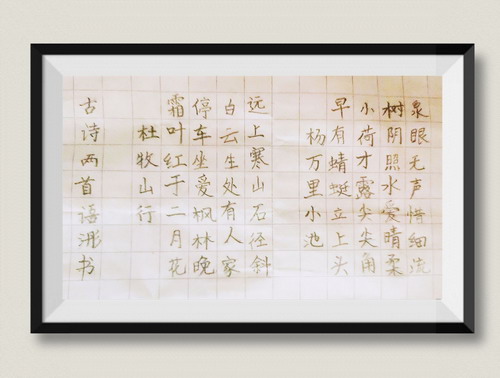 泉眼无声惜细流
树阴照水爱晴柔
小荷才露尖尖角
早有蜻蜓立上头
杨万里小池
远上寒山石径斜
白云生处有人家
停车坐爱枫林晚
霜叶红于二月花
杜牧山行
古诗两首书